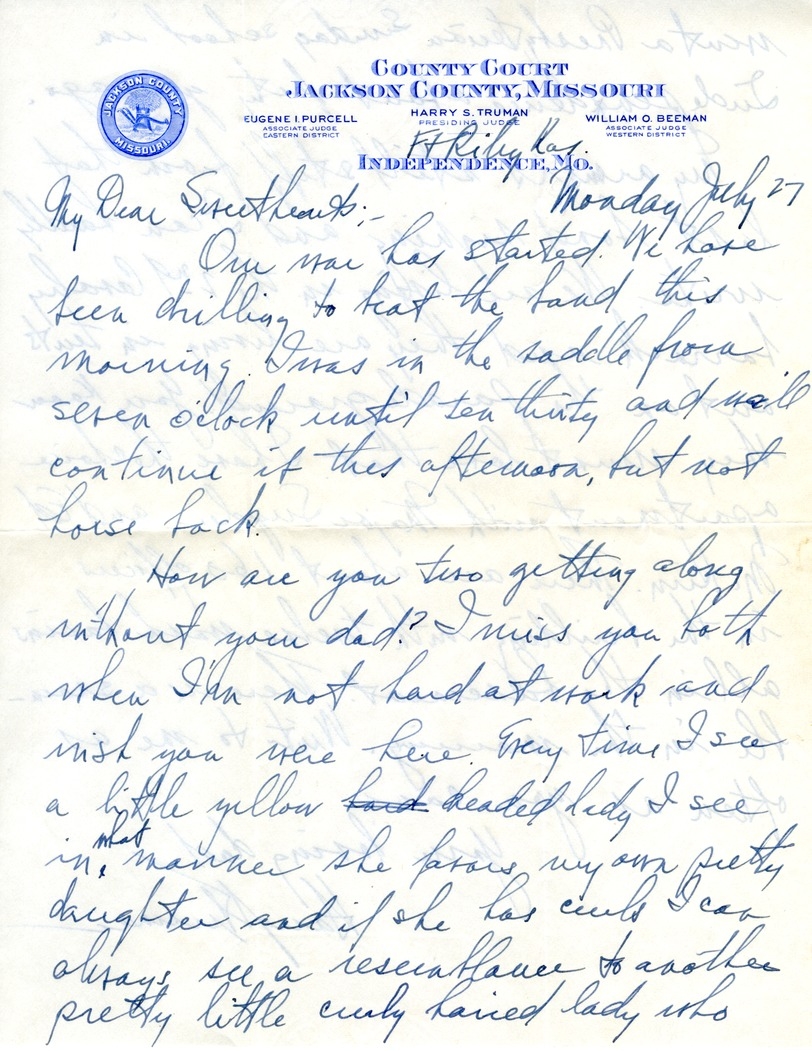 COUNTY COURT
JACKSON COUNTY, MISSOURI
JACKSON COUNTY
MISSOURI
EUGENE I. PURCELL
ASSOCIATE JUDGE
EASTERN DISTRICT
HARRY S. TRUMAN
PRESIDING JUDGE
WILLIAM O. BEEMAN
ASSOCIATE JUDGE
WESTERN DISTRICT
Ft Riley Kas.
INDEPENDENCE, MO.
Monday July 27
My Dear Sweethearts;-
Our war has started. We have
been drilling to beat the band this
morning. I was in the saddle from
seven o'clock until ten thirty and will
continue it this afternoon, but not
horse back.
How are you two getting along
without your dad? I miss you both
when I'm not hard at work and
wish you were here. Every time I see
a little yellow haird headed lady I see
in what manner she favors my own pretty
daughter and if she has curls I can
always see a resemblance to another
pretty little curly haired lady who